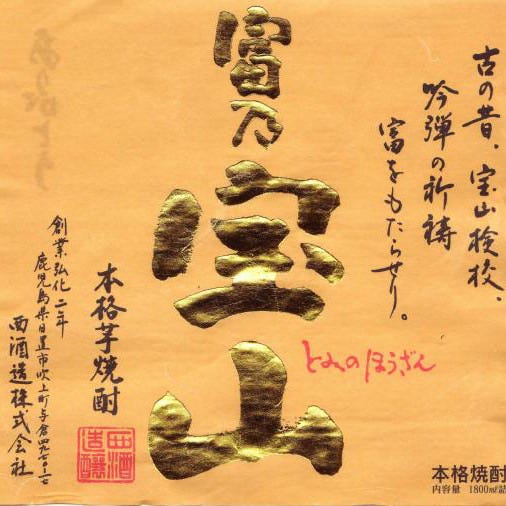 古の昔、宝山検校、
吟弾の祈祷
富をもたらせり。
富乃
宝山
とみのほうざん
ありがとう
本格芋焼酎
創業弘化二年
鹿児島県日置市吹上町与倉四九七〇-十七
西酒造株式会社
西酒
造醸
本格焼酎
内容量 1800㎖詰